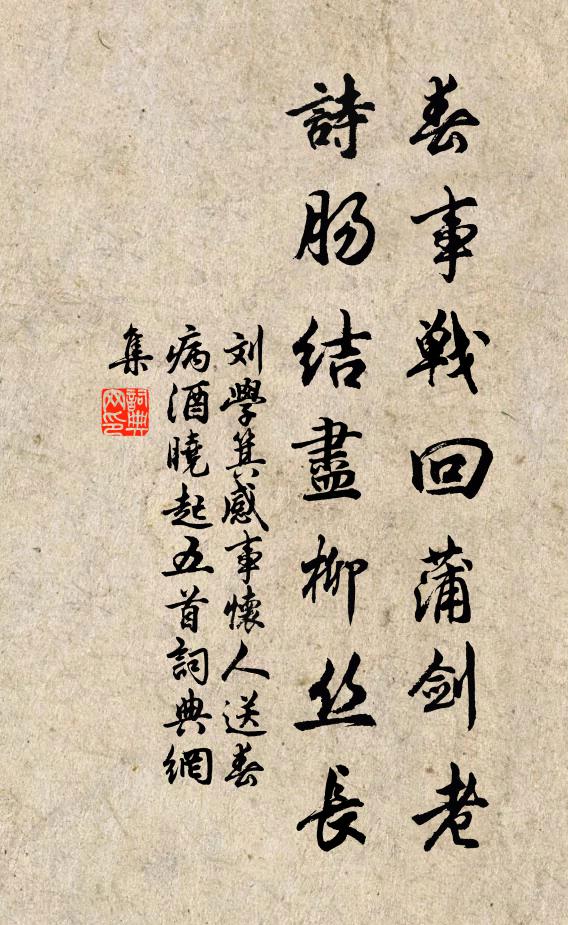 春事戰回蒲劍老
詩腸結盡柳丝長
刘學箕感事懷人送春
病酒曉起五首詞典網
集
詞典
网印